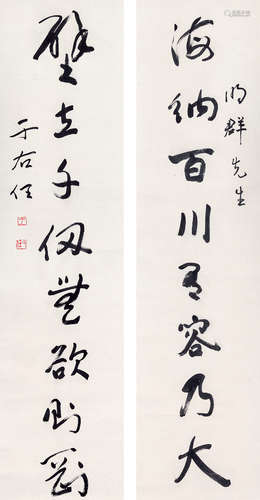 海纳百川有容乃大
泳群先生
壁立千仞無欲则刚
于右任